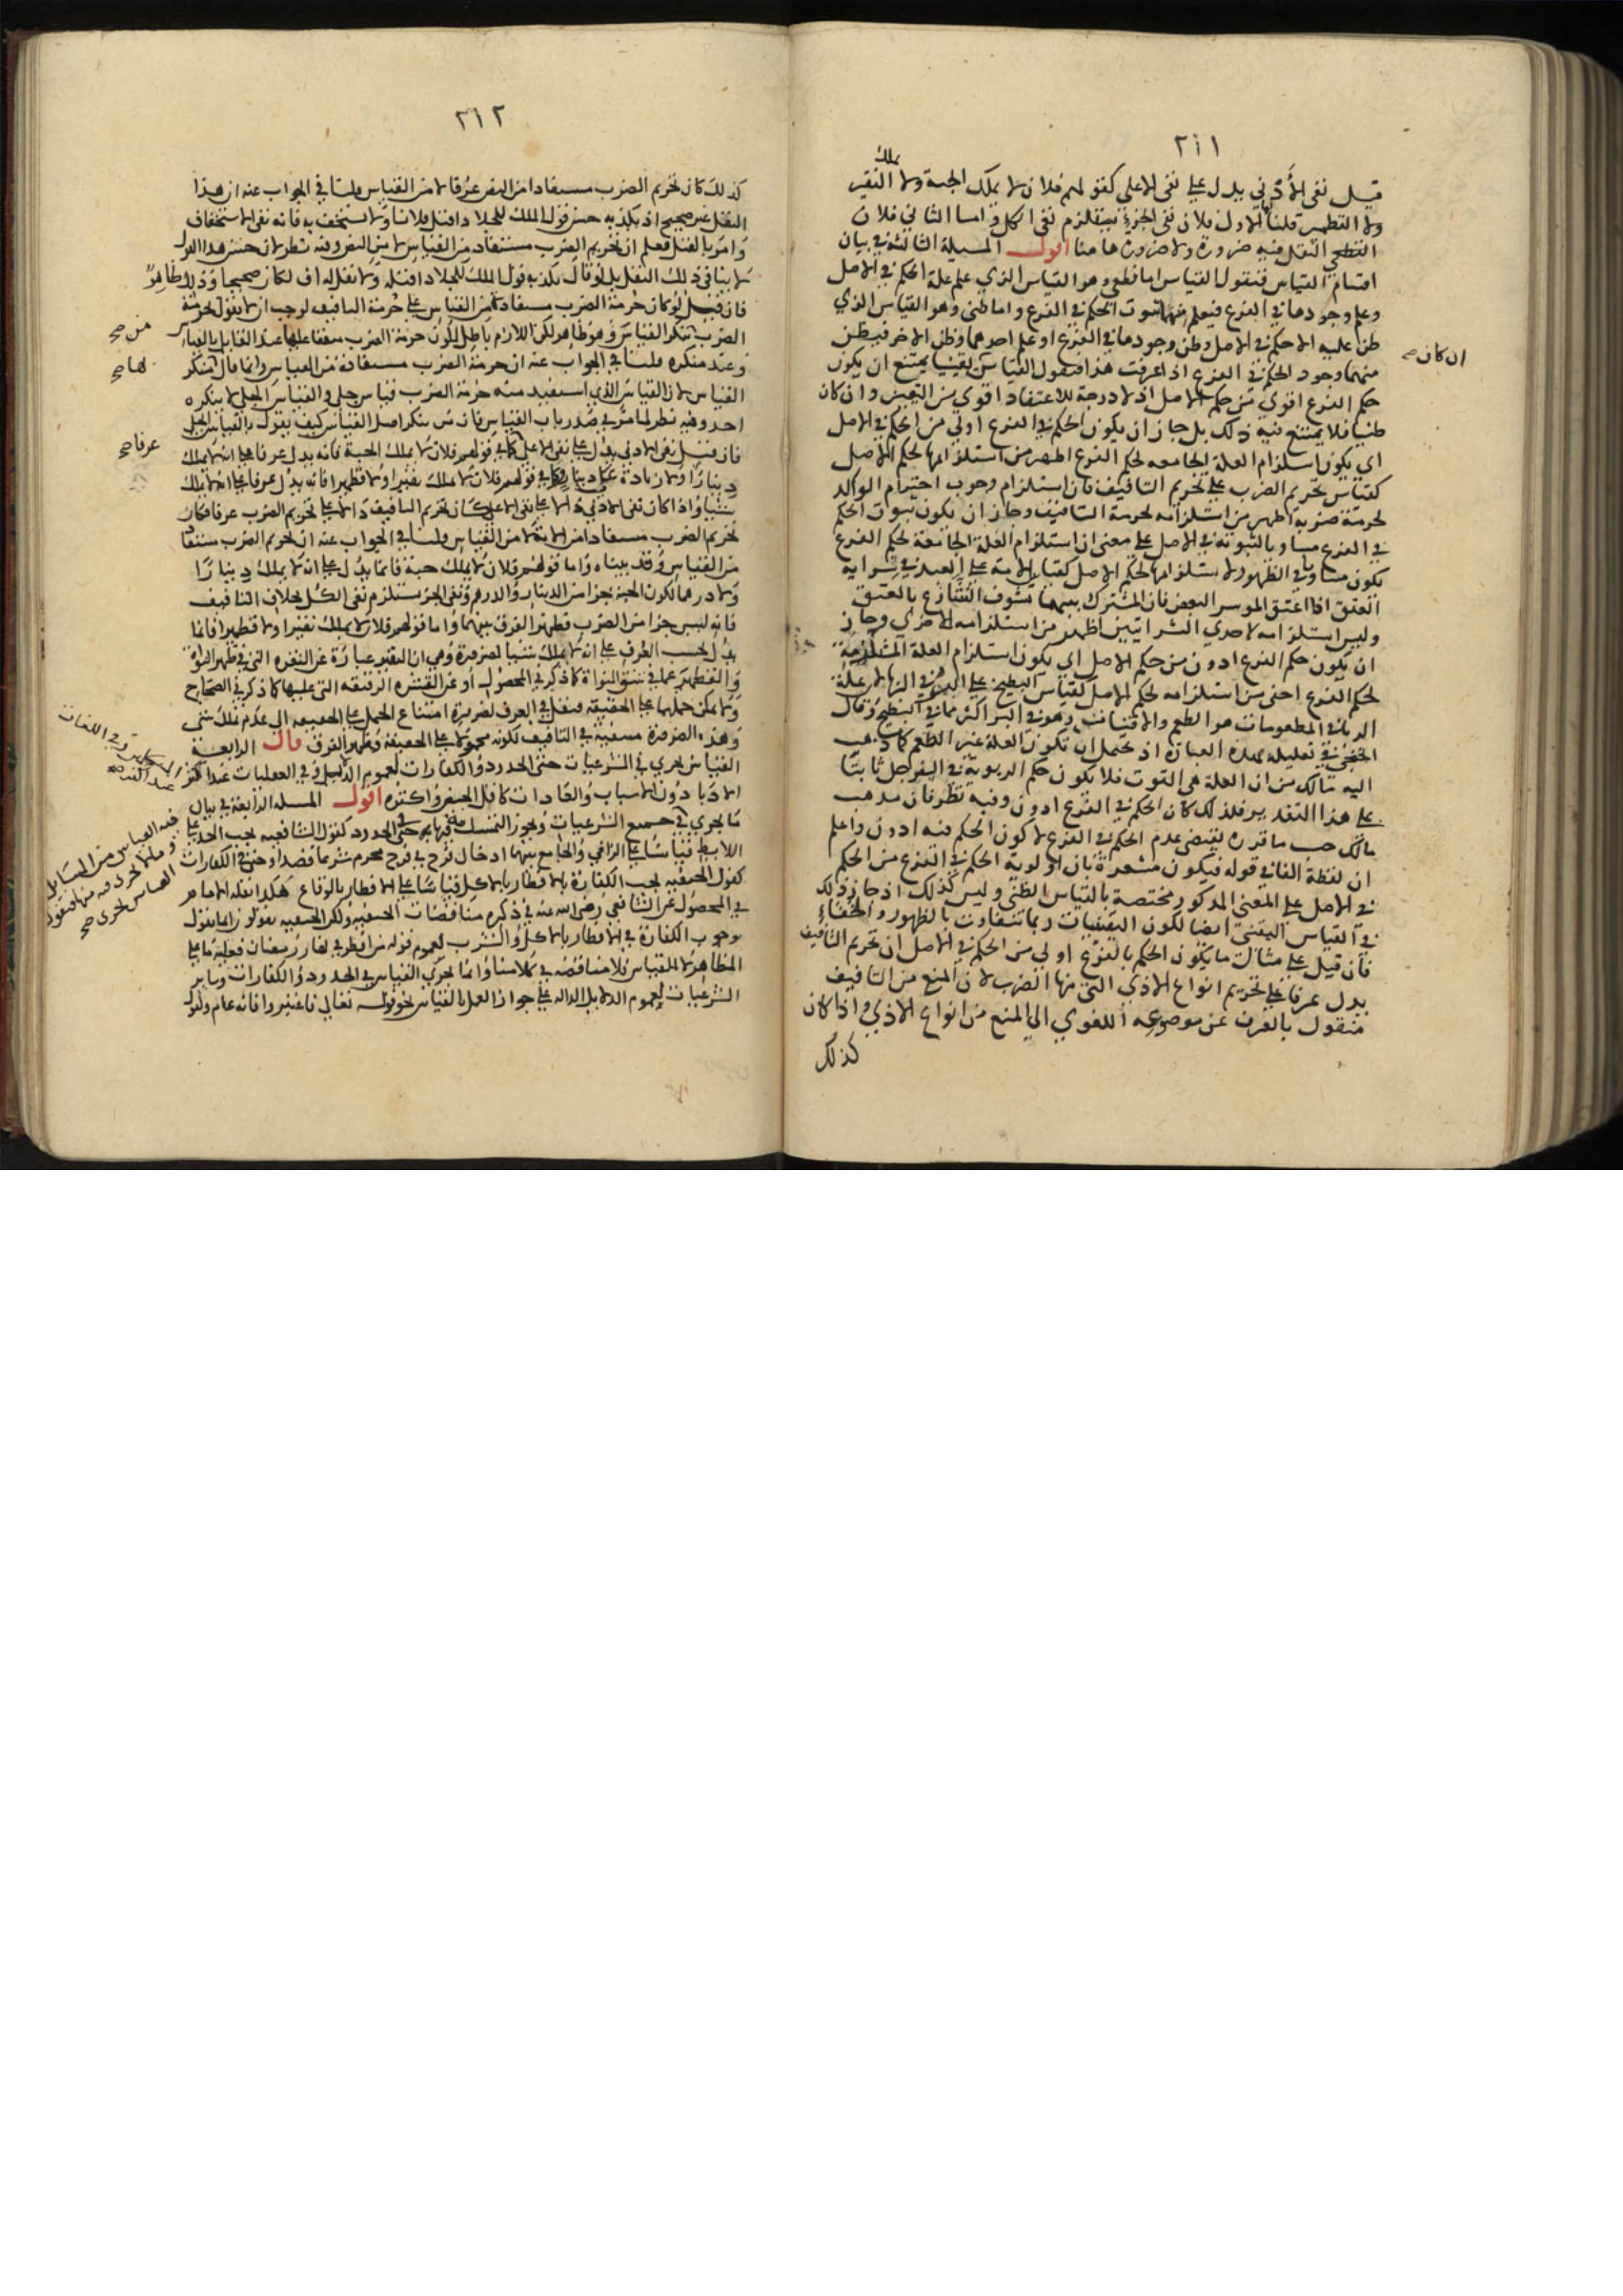 ٢١١
يملك
قيل نفى الأدنى يدل على نفى الاعلى كقولهم فلان لا يملك الحبة ولا النقير
ولا القطمير قلنا اما الاول فلان نفى الجزء يستلزم نفى الكل واما الثانى فلان
النقل فيه ضرورة ولا ضرورة هاهنا اقول المسيلة الثالثة فى بيان
اقسام القياس فنقول القياس اما قطعى وهو القياس الذي علم علة الحكم فى الاصل
وعلم وجودها فى الفرع فيعلم منهما ثبوت الحكم فى الفرع واما ظنى وهو القياس الذي
ظن علية الحكم فى الاصل وظن وجودها فى الفرع او علم احدهما وظن الاخر فيظن
ان كان صح
منهما وجود الحكم فى الفرع اذا عرفت هذا فنقول القياس يقينيا يمتنع ان يكون
حكم الفرع اقوي من حكم الاصل اذ لا درجة للاعتقاد اقوي من اليقين وان كان
ظنيا فلا يمتنع فيه ذلك بل جاز ان يكون الحكم فى الفرع اولى من الحكم فى الاصل
اي يكون استلزام العلة الجامعه لحكم الفرع اظهر من استلزامها لحكم الاصل
كقياس تحريم الضرب على تحريم التافيف فان استلزام وجوب احترام الوالد
لحرمة ضربه اظهر من استلزامه لحرمة التافيف وجاز ان يكون ثبوت الحكم
فى الفرع مساويا لثبوته فى الاصل على معنى ان استلزام العلة الجامعة لحكم الفرع
يكون مساويا فى الظهور لاستلزامها لحكم الاصل كقياس الامة على العبد فى سراية
العتق اذا اعتق الموسر البعض فان المشترك بينهما تشوف الشارع بالعتق
وليس استلزامه لاحدي السرايتين اظهر من استلزامه للاخرى وجاز
ان يكون حكم الفرع ادون من حكم الاصل اي يكون استلزام العلة المستلزمة
لحكم الفرع اخفى من استلزامه لحكم الاصل كقياس البطيخ على البر فى الربا لان علة
الربا فى المطعومات هو الطعم والاقتيات وهو فى البر اكثر مما فى البطيخ وقال
الخنجى فى تعليله بهذه العبارة اذ يحتمل ان تكون العلة غير الطعم كما ذهب
اليه مالك من ان العلة هى القوت فلا يكون حكم الربوية فى السفرجل ثابتا
على هذا التقدير فلذلك كان الحكم فى الفرع ادون وفيه نظر فان مذهب
مالك حسب ما قدره يقتضى عدم الحكم فى الفرع لا كون الحكم فيه ادون واعلم
ان لفظة الفا فى قوله فيكون مشعرة بان اولوية الحكم فى الفرع من الحكم
فى الاصل على المعنى المذكور مختصة بالقياس الظنى وليس كذلك اذ جاز ذلك
فى القياس اليقينى ايضا لكون اليقينيات ربما تتفاوت بالظهور والخفاء
فان قيل على مثال ما يكون الحكم بالفرع اولى من الحكم فى الاصل ان تحريم التافيف
يدل عرفا على تحريم انواع الاذي التى منها الضرب لان المنع من التافيف
منقول بالعرف عن موضوعه اللغوي الى المنع من انواع الاذي واذا كان
كذلك
٢١٢
كذلك كان تحريم الضرب مستفادا من النص عرفا لا من القياس قلنا فى الجواب عنه ان هذا
النقل غير صحيح اذ يكذبه حسن قول الملك للجلاد اقتل فلانا ولا تستخف به فانه نفى الاستخفاف
وامر بالقتل فعلم ان تحريم الضرب مستفاد من القياس لا من النص وفيه نظر لان حسن هذا القول
لا ينافى ذلك النقل بل لو قال يكذبه قول الملك للجلاد اقتله ولا تقل له اف لكان صحيحا وذلك ظاهر
فان قيل لو كان حرمة الضرب مستفادة من القياس على حرمة التافيف لوجب ان لا يقول بحرمة
من صح
الضرب منكر القياس وهو ظاهر لكن اللازم باطل لكون حرمة الضرب متفقا عليها عند القايل بالقياس
لها صح
وعند منكره قلنا فى الجواب عنه ان حرمة الضرب مستفادة من القياس وانما قال المنكر
القياس لان القياس الذي استفيد منه حرمة الضرب قياس جلى والقياس الجلى لا ينكره
احد وفيه نظر لما مر فى صدر باب القياس فان من ينكر اصل القياس كيف يقول بالقياس الجلى
عرفا صح
فان قيل نفى الادنى يدل على نفى الاعلى كما فى قولهم فلان لا يملك الحبة فانه يدل عرفا على انه لا يملك
دينارا ولا زيادة على دينار وكما فى قولهم فلان لا يملك نقيرا ولا قطميرا فانه يدل عرفا على انه لا يملك
شيئا واذا كان نفى الادنى دالا على نفى الاعلى كان تحريم التافيف دالا على تحريم الضرب عرفا فكان
تحريم الضرب مستفادا من الاية لا من القياس قلنا فى الجواب عنه ان تحريم الضرب مستفاد
من القياس وقد بيناه واما قولهم فلان لا يملك حبة فانما يدل على انه لا يملك دينارا
ولا درهما لكون الحبة جزا من الدينار والدرهم ونفى الجزء يستلزم نفى الكل بخلاف التافيف
فانه ليس جزا من الضرب فظهر الفرق بينهما واما قولهم فلان لا يملك نقيرا ولا قطميرا فانما
يدل بحسب العرف على انه لا يملك شيئا لضرورة وهى ان النقير عبارة عن النقرة التى فى ظهر النواة
والقطمير عما فى شق النواة كما ذكر فى المحصول او عن القشرة الرقيقه التى عليها كما ذكر فى الصحاح
ولا يمكن حملهما على الحقيقة فنقل فى العرف لضرورة امتناع الحمل على الحقيقه الى عدم ملك شى
وهذه الضرورة منفية فى التافيف لكونه محمولا على الحقيقة فظهر الفرق قال الرابعة
القياس يجري فى الشرعيات حتى الحدود والكفارات لعموم الدلايل وفى العقليات عند اكثر المتكلمين وفى اللغات
عند اكثر صح
الادبا دون الاسباب والعادات كاقل الحيض واكثره اقول المسيلة الرابعة فى بيان
ما يجري فيه القياس من المسايل وما لا يجري فيه منها فنقول القياس يجرى صح
فى جميع الشرعيات ويجوز التمسك به فيها حتى فى الحدود كقول الشافعيه يجب الحد على
اللايط قياسا على الزانى والجامع بينهما ادخال فرج فى فرج محرم شرعا قصدا وحتى فى الكفارات
كقول الحنفيه يجب الكفارة بالافطار بالاكل قياسا على الافطار بالوقاع هكذا نقله الامام
فى المحصول عن الشافعى رضى الله عنه فى ذكره مناقضات الحنفيه ولكن الحنفيه يقولون انما نقول
بوجوب الكفارة فى الافطار بالاكل والشرب لعموم قوله من افطر فى نهار رمضان فعليه ما على
المظاهر لا للقياس فلا مناقضه فى كلامنا وانما يجري القياس فى الحدود والكفارات وساير
الشرعيات لعموم الدلايل الداله على جواز العمل بالقياس نحو قوله تعالى فاعتبروا فانه عام ولقول